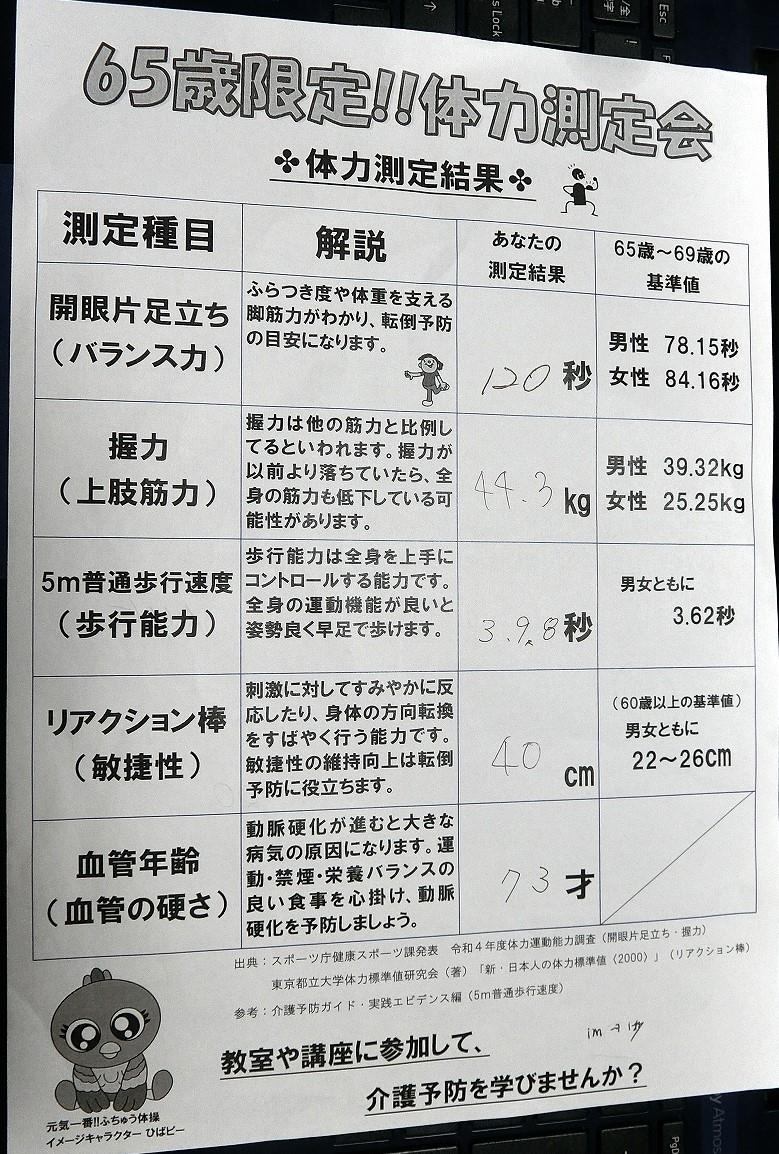 65歳限定!!体力測定会
✤体力測定結果✤
測定種目
解説
あなたの
測定結果
65歳～69歳の
基準値
開眼片足立ち
（バランス力）
ふらつき度や体重を支える
脚筋力がわかり、転倒予防
の目安になります。
120秒
男性 78.15秒
女性 84.16秒
握力
（上肢筋力）
握力は他の筋力と比例し
てるといわれます。握力が
以前より落ちていたら、全
身の筋力も低下している可
能性があります。
44.3kg
男性 39.32kg
女性 25.25kg
5m普通歩行速度
（歩行能力）
歩行能力は全身を上手に
コントロールする能力です。
全身の運動機能が良いと
姿勢良く早足で歩けます。
3.9.8秒
男女ともに
3.62秒
リアクション棒
（敏捷性）
刺激に対してすみやかに反
応したり、身体の方向転換
をすばやく行う能力です。
敏捷性の維持向上は転倒
予防に役立ちます。
40cm
（60歳以上の基準値）
男女ともに
22～26cm
血管年齢
（血管の硬さ）
動脈硬化が進むと大きな
病気の原因になります。運
動・禁煙・栄養バランスの
良い食事を心掛け、動脈
硬化を予防しましょう。
73才
出典：スポーツ庁健康スポーツ課発表 令和4年度体力運動能力調査（開眼片足立ち・握力）
東京都立大学体力標準値研究会（著）「新・日本人の体力標準値〈2000〉」（リアクション棒）
参考：介護予防ガイド・実践エビデンス編（5m普通歩行速度）
教室や講座に参加して、
介護予防を学びませんか？
元気一番!!ふちゅう体操
イメージキャラクター ひばピー
Esc
PgD